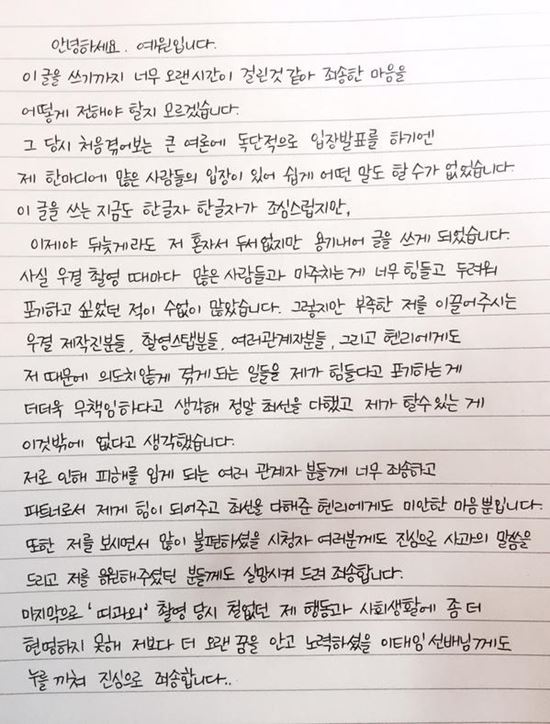 안녕하세요. 예원입니다.
이 글을 쓰기까지 너무 오랜시간이 걸린것 같아 죄송한 마음을
어떻게 전해야 할지 모르겠습니다.
그 당시 처음겪어보는 큰 여론에 독단적으로 입장발표를 하기엔
제 한마디에 많은 사람들의 입장이 있어 쉽게 어떤 말도 할 수가 없었습니다.
이 글을 쓰는 지금도 한글자 한글자가 조심스럽지만,
이제야 뒤늦게라도 저 혼자서 두서없지만 용기내어 글을 쓰게 되었습니다.
사실 우결 촬영 때마다 많은 사람들과 마주치는게 너무 힘들고 두려워
포기하고 싶었던 적이 수없이 많았습니다. 그렇지만 부족한 저를 이끌어주시는
우결 제작진분들, 촬영스탭분들, 여러관계자분들, 그리고 헨리에게도
저 때문에 의도치않게 겪게 되는 일들을 제가 힘들다고 포기하는게
더더욱 무책임하다고 생각해 정말 최선을 다했고 제가 할수있는 게
이것밖에 없다고 생각했습니다.
저로 인해 피해를 입게 되는 여러 관계자 분들께 너무 죄송하고
파트너로서 제게 힘이 되어주고 최선을 다해준 헨리에게도 미안한 마음 뿐입니다.
또한 저를 보시면서 많이 불편하셨을 시청자 여러분께도 진심으로 사과의 말씀을
드리고 저를 응원해주셨던 분들께도 실망시켜 드려 죄송합니다.
마지막으로 '띠과외' 촬영 당시 철없던 제 행동과 사회생활에 좀 더
현명하지 못해 저보다 더 오랜 꿈을 안고 노력하셨을 이태임선배님께도
누를 끼쳐 진심으로 죄송합니다..